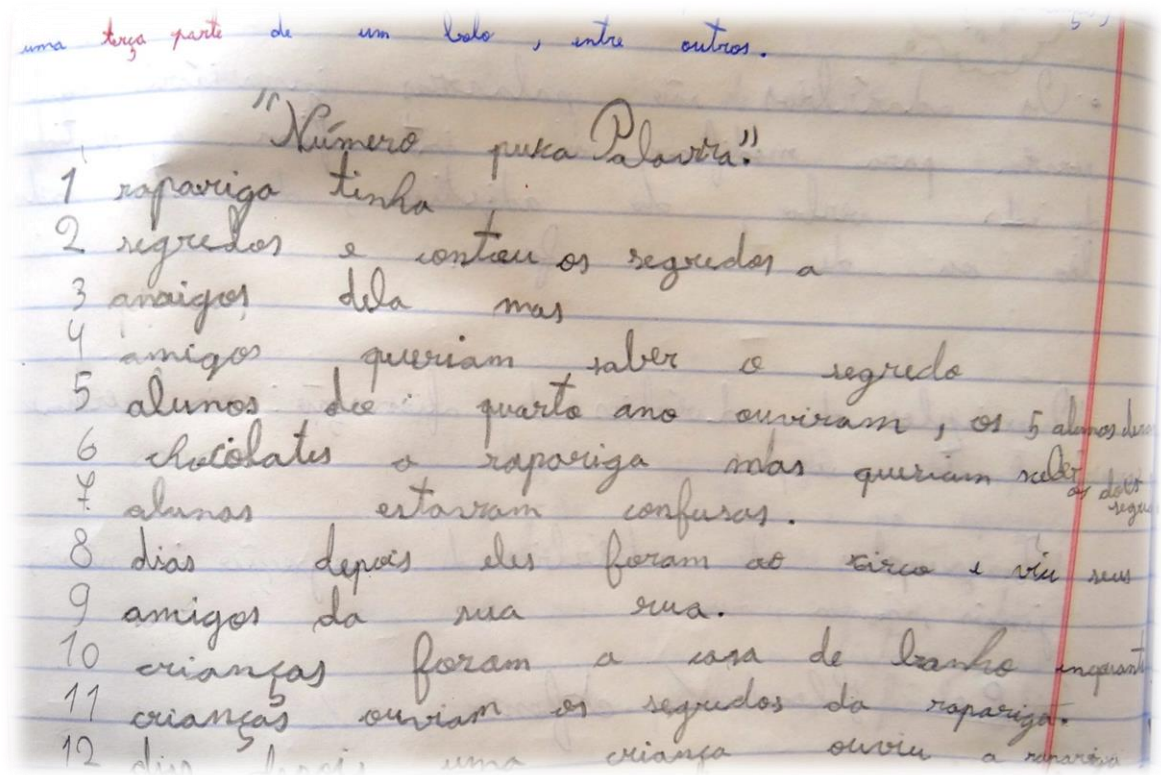 uma terça parte de um bolo, entre outros.
"Número puxa Palavra."
1 rapariga tinha
2 segredos e contou os segredos a
3 amigos dela mas
4 amigos queriam saber o segredo
5 alunos do quarto ano ouviram, os 5 alunos
6 chocolates a rapariga mas queriam saber os dois
7 alunas estavam confusas.
8 dias depois eles foram ao circo e viu seus
9 amigos da sua rua.
10 crianças foram a casa de banho
11 crianças ouviam os segredos da rapariga.
12 dias depois uma criança ouviu a rapariga